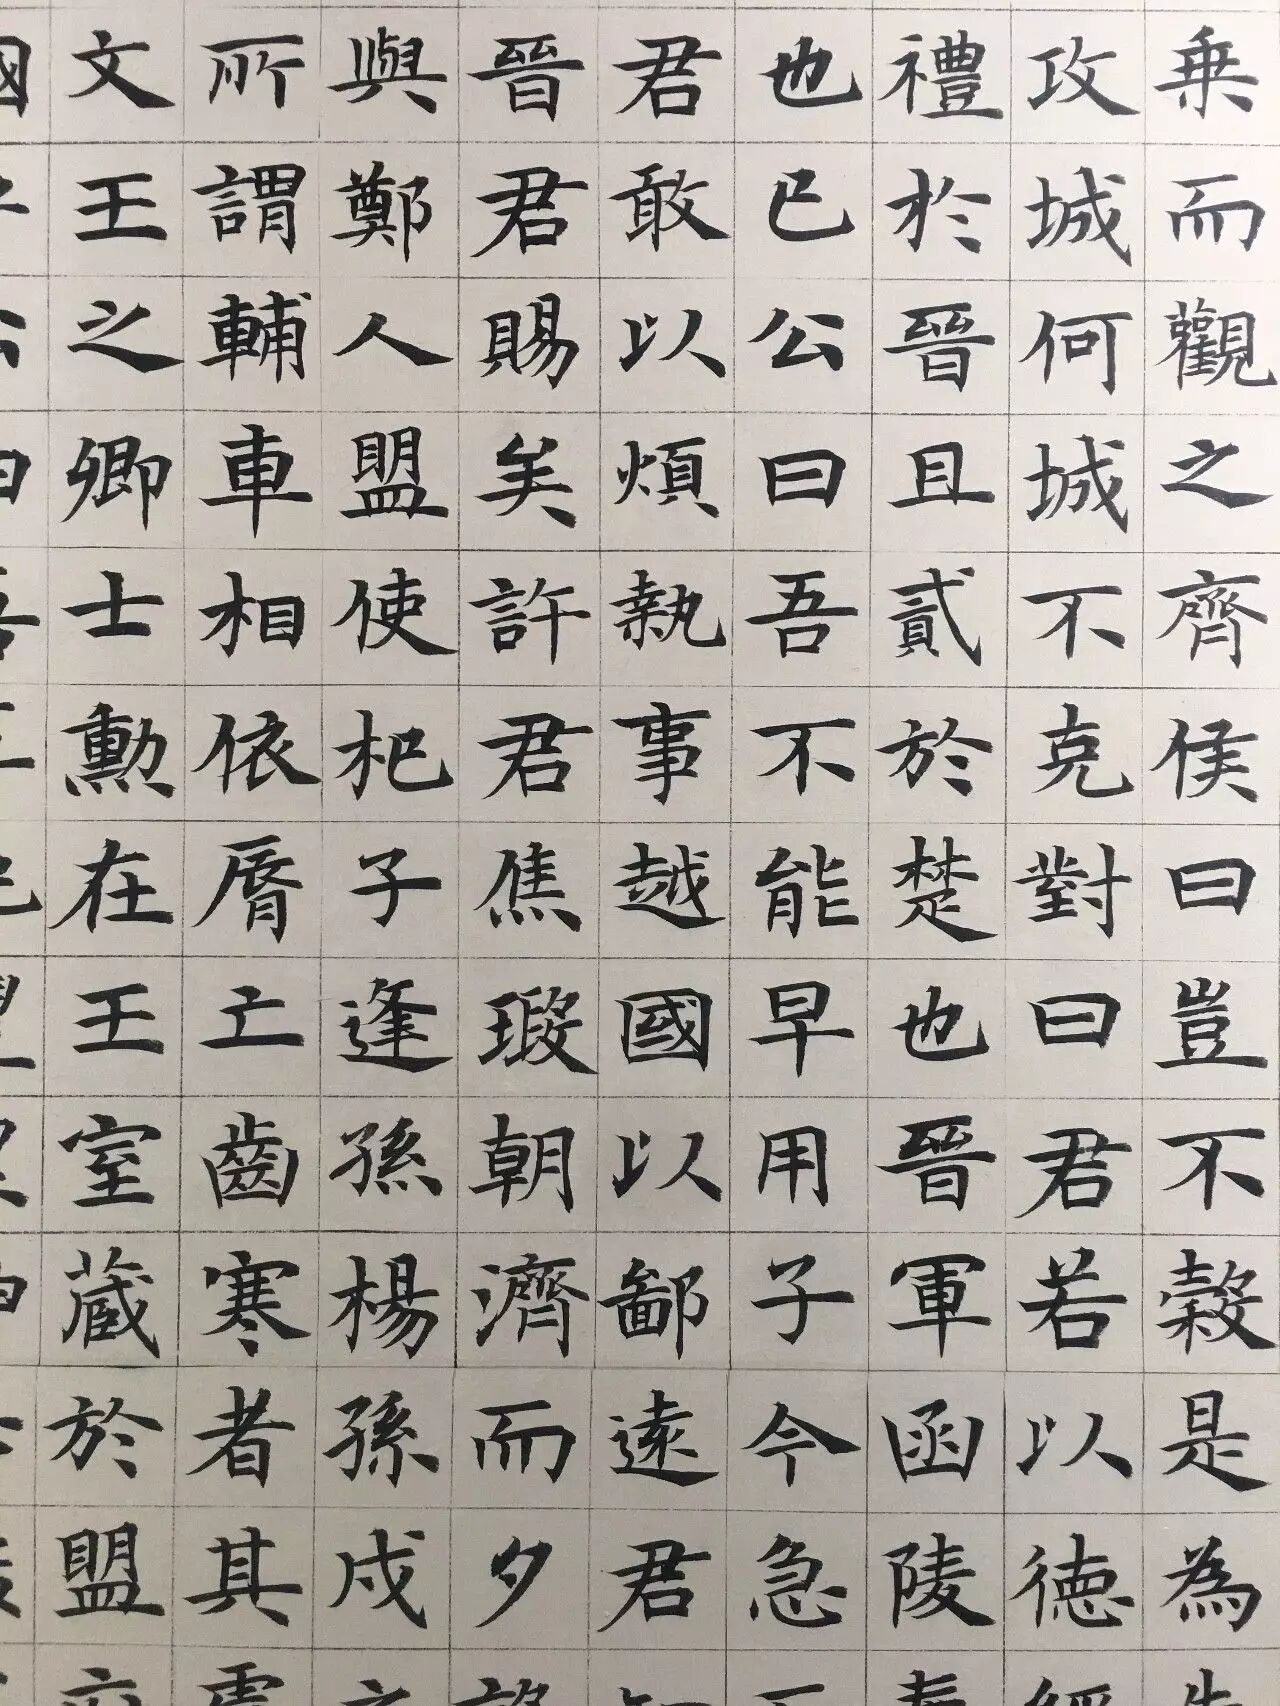 乗而觀之齊侯曰豈不穀是為
攻城何城不克對曰君若以德
禮於晉且貳於楚也晉軍函陵
也已公曰吾不能早用子今急
君敢以煩執事越國以鄙遠君
晉君賜矣許君焦瑕朝濟而夕
與鄭人盟使杞子逢孫楊孫戍
所謂輔車相依脣亡齒寒者其
文王之卿士勳在王室蔵於盟